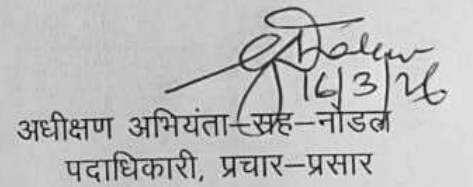 16/3/26
अधीक्षण अभियंता-सह-नोडल
पदाधिकारी, प्रचार-प्रसार